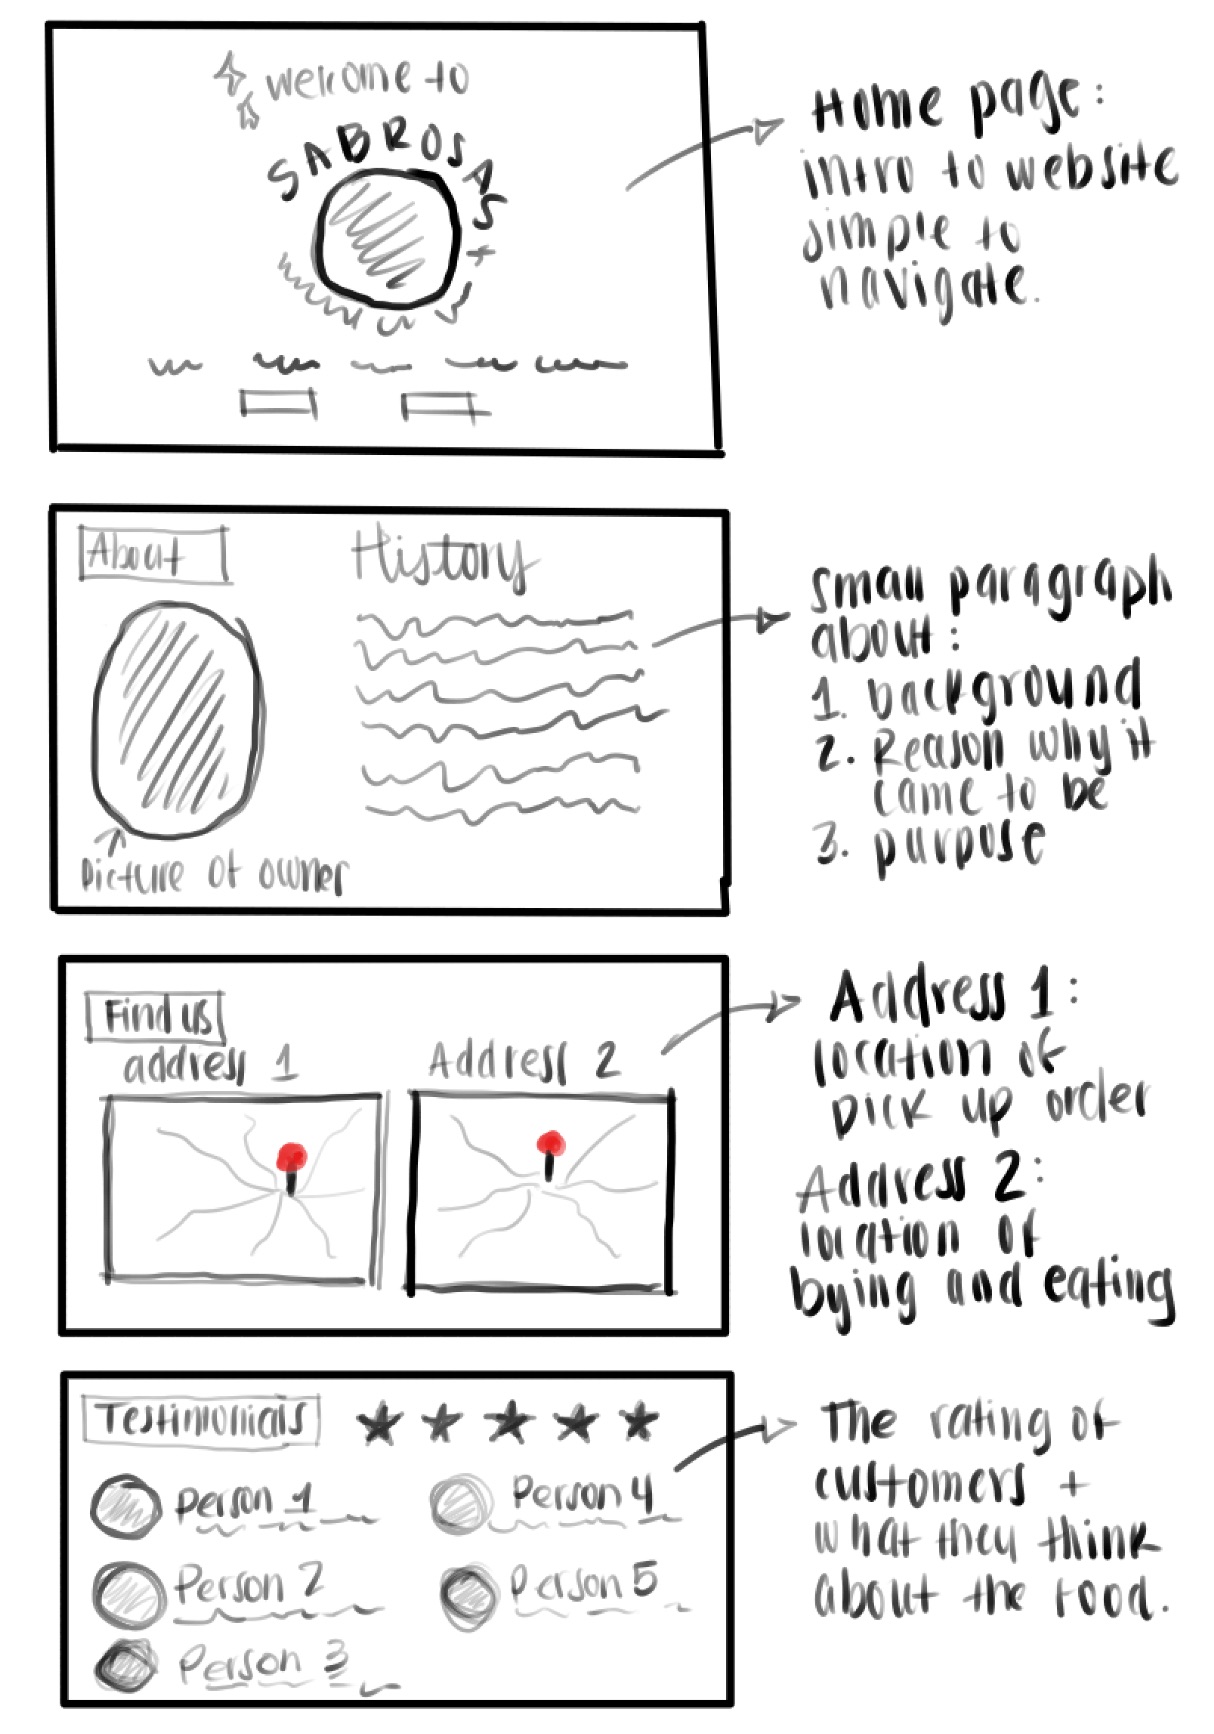 welcome to
SABROSAS
Home page:
intro to website
simple to
navigate.
About
History
Picture of owner
small paragraph
about:
1. background
2. Reason why it
came to be
3. purpose
Find us
address 1
Address 2
Address 1:
location of
pick up order
Address 2:
location of
bying and eating
Testimonials
Person 1
Person 4
Person 2
Person 5
Person 3
The rating of
customers +
what they think
about the food.